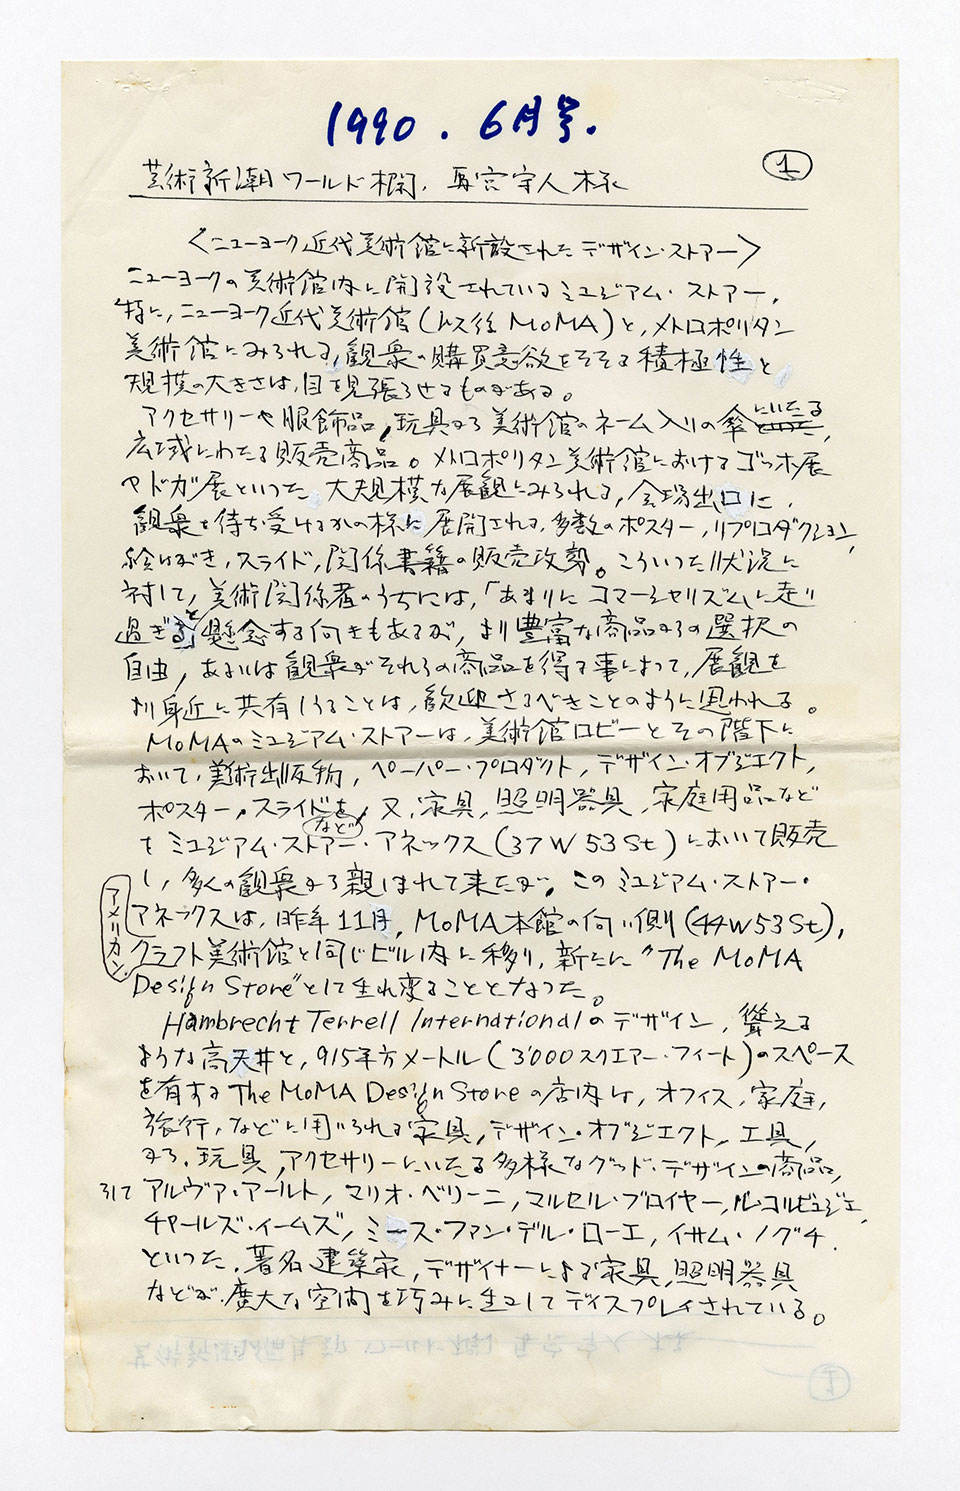 1990. 6月号.
①
芸術新潮ワールド欄、馬宮守人様
〈ニューヨーク近代美術館に新設されたデザイン・ストアー〉
ニューヨークの美術館内に開設されているミュジアム・ストアー、
特に、ニューヨーク近代美術館(以後MoMA)と、メトロポリタン
美術館にみられる、観衆の購買意欲をそそる積極性と
規模の大きさは、目を見張らせるものがある。
アクセサリーや服飾品、玩具から美術館のネーム入りの傘にいたる、
広域にわたる販売商品。メトロポリタン美術館におけるゴッホ展
やドガ展といった、大規模な展観にみられる、会場出口に、
観衆を待ち受けるかの様に展開される、多数のポスター、リプロダクション、
絵はがき、スライド、関係書籍の販売攻勢。こういった状況に
対して、美術関係者のうちには、「あまりにコマーシャリズムに走り
過ぎると懸念する向きもあるが、より豊富な商品からの選択の
自由、あるいは観衆がそれらの商品を得る事によって、展観を
より身近に共有しうることは、歓迎さるべきことのように思われる。
MoMAのミュジアム・ストアーは、美術館ロビーとその階下に
おいて、美術出版物、ペーパー・プロダクト、デザイン・オブジェクト、
ポスター、スライドなどを、又、家具、照明器具、家庭用品など
をミュジアム・ストアー・アネックス(37W53St)において販売
し、多くの観衆から親しまれて来たが、このミュジアム・ストアー・
アネックスは、昨年11月、MoMA本館の向い側(44W53St)、
アメリカン・クラフト美術館と同じビル内に移り、新たに"The MoMA
Design Store"として生れ変ることとなった。
Hambrecht Terrell Internationalのデザイン、聳える
ような高天井と、915平方メートル(3'000スクエアー・フィート)のスペース
を有するThe MoMA Design Storeの店内は、オフィス、家庭、
旅行、などに用いられる家具、デザイン・オブジェクト、工具、
から、玩具、アクセサリーにいたる多様なグッド・デザインの商品、
そしてアルヴァ・アールト、マリオ・ベリーニ、マルセル・ブロイヤー、ル・コルビュジェ、
チャールズ・イームズ、ミース・ファン・デル・ローエ、イサム・ノグチ、
といった、著名建築家、デザイナーによる家具、照明器具
などが、広大な空間を巧みに生かしてディスプレイされている。